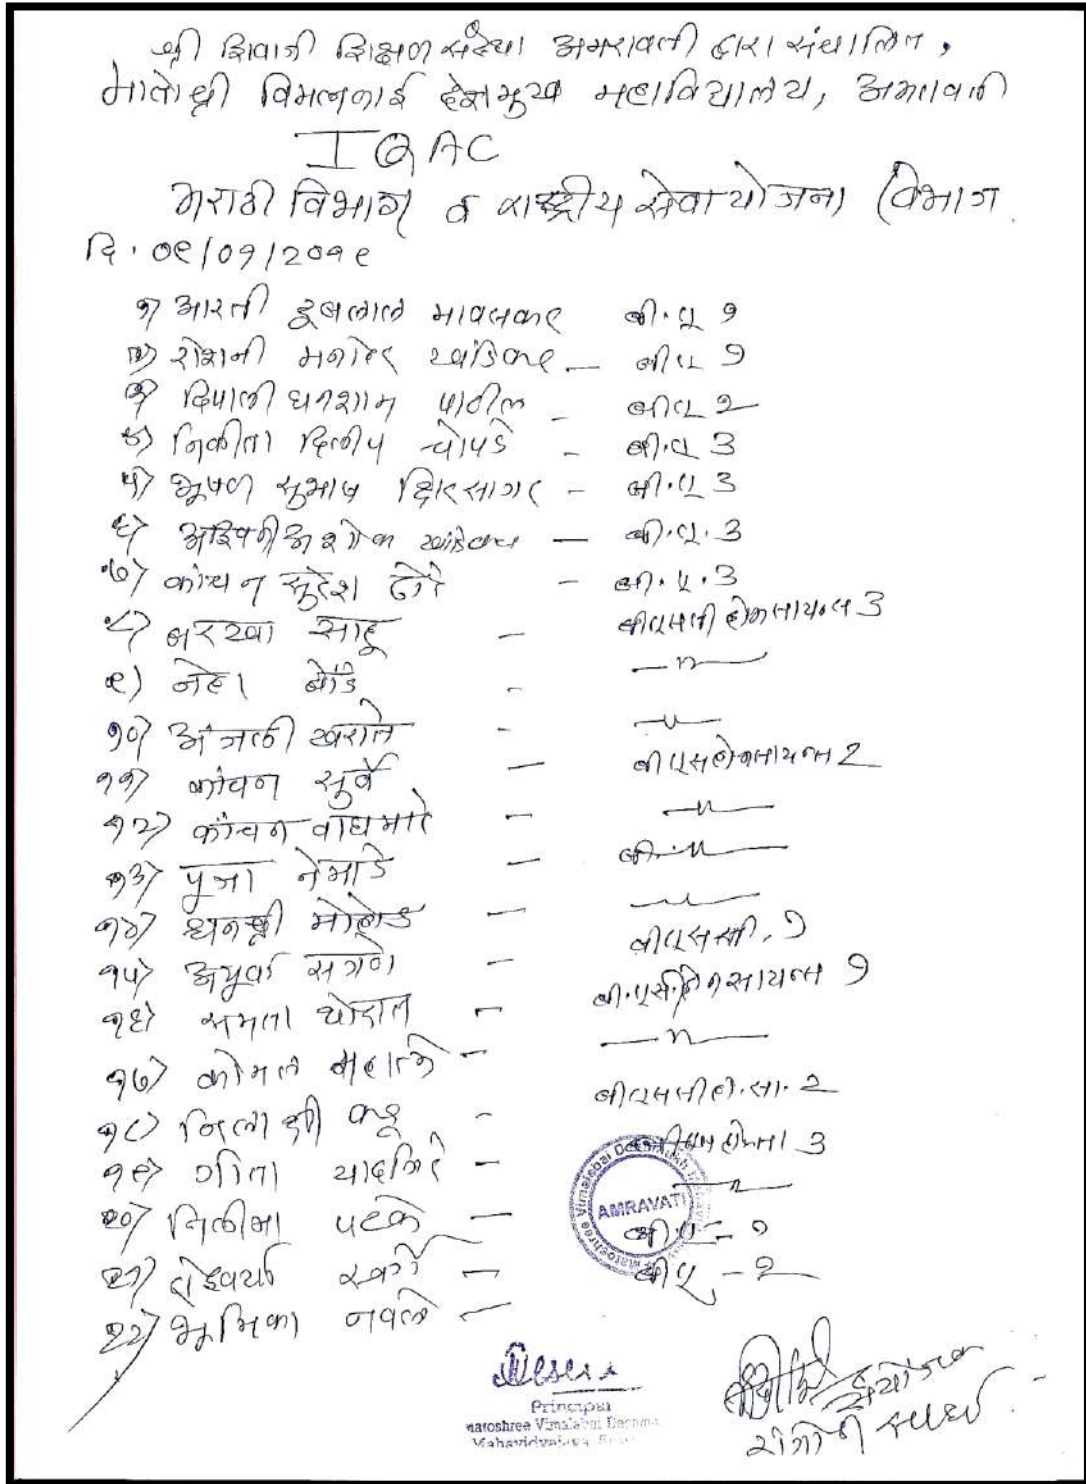 श्री शिवाजी शिक्षण संस्था अमरावती द्वारा संचालित,
मातोश्री विमलबाई देशमुख महाविद्यालय, अमरावती
IQAC
मराठी विभाग व राष्ट्रीय सेवा योजना विभाग
दि. ०९/०१/२०१९
१) आरती मावसकर बी.ए १
२) रोशनी मनोहर खांडेकर – बीए १
३) दिपाली घनशाम पाटील – बीए २
४) निकीता दिलीप चोपडे – बी.ए ३
५) भूषण सुभाष क्षिरसागर – बी.ए ३
६) अश्विनी अशोक खांडेकर – बी.ए.३
७) कांचन सुरेश ढोरे – बी.ए.३
८) बरखा साहू – बीएससी होमसायन्स ३
९) नेहा बोंडे – —〃—
१०) अंजली खराते – —〃—
११) कांचन सुर्वे – बीएसहोमसायन्स २
१२) कांचन वाघमारे – —〃—
१३) पूजा नेमाडे – बी.〃—
१४) धनश्री मोहोड – —〃—
१५) अपूर्वा सगणे – बीएससी. १
१६) समता थोरात – बी.एस.होमसायन्स १
१७) कोमल महाले – —〃—
१८) निलाक्षी कडू – बीएससीहो.सा. २
१९) गीता यादगिरे – होमसा ३
२०) निलीमा पटके – —〃—
२१) ऐश्वर्या – बी.ए – १
२२) भूमिका नवले – बीए – २
Matoshree Vimalabai Deshmukh
AMRAVATI
Principal
Matoshree Vimalabai Deshmukh
Mahavidyalaya
संयोजक